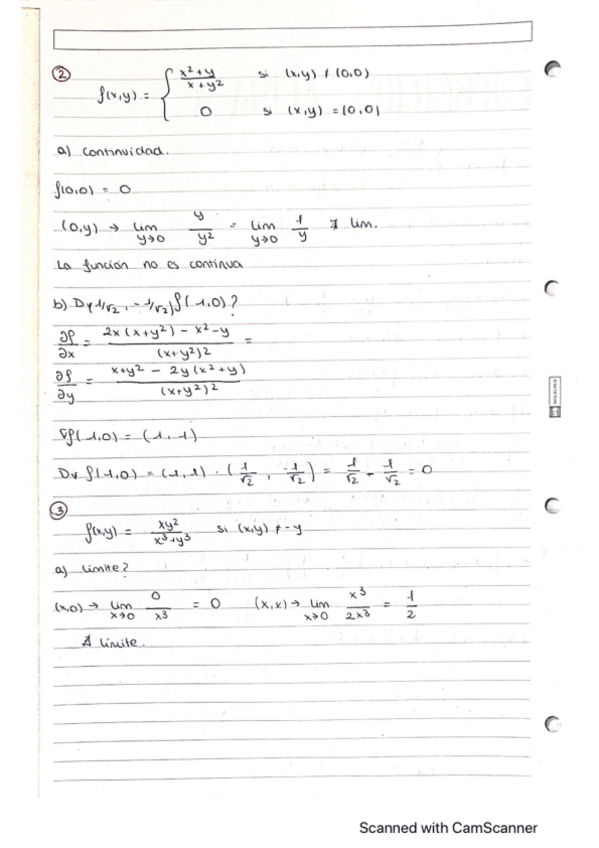 ② f(x,y) = { x²+y / x+y² si (x,y) ≠ (0,0)
0 si (x,y) = (0,0)
a) Continuidad.
f(0,0) = 0
(0,y) → lim y→0 y/y² = lim y→0 1/y ∄ lim.
La función no es continua
b) D(1/√2, -1/√2) f(1,0)?
∂f/∂x = 2x(x+y²) - x²-y / (x+y²)2 =
∂f/∂y = x+y² - 2y(x²+y) / (x+y²)2
∇f(1,0) = (1,1)
Dv f(1,0) = (1,1) · (1/√2, -1/√2) = 1/√2 - 1/√2 = 0
③
f(x,y) = xy² / x³+y³ si (x,y) ≠ -y
a) límite?
(x,0) → lim x→0 0/x³ = 0 (x,x) → lim x→0 x³/2x³ = 1/2
∄ límite.
Scanned with CamScanner